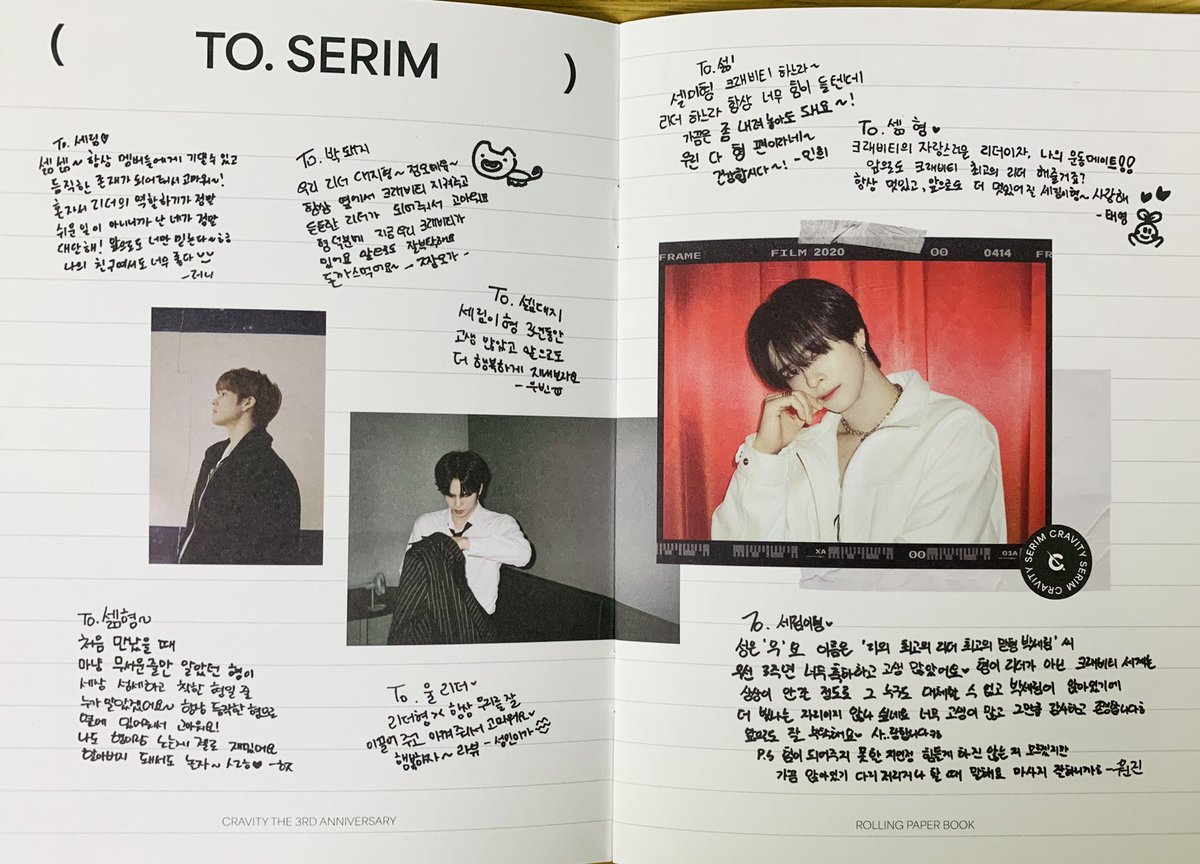 ( TO. SERIM )
To. 세림♡
셈셈~ 항상 멤버들에게 기댈수 있고
듬직한 존재가 되어줘서 고마워~!
혼자서 리더의 역할하기가 정말
쉬운일이 아니니까 난 네가 정말
대단해! 앞으로도 너만 믿는다~ㅎㅎ
나의 친구여서도 너무 좋다
To. 박돼지
우리 리더 대지형~
항상 옆에서 크래비티 지켜주고
든든한 리더가 되어주셔서 고마워요
형 덕분에 지금 우리 크래비티가
있어요 앞으로도 잘부탁해요
돈까스먹어요~
To. 셂대지
세림이형 3년동안
고생 많았고 앞으로도
더 행복하게 지내보자요
- 우빈
To. 셂형~
처음 만났을 때
마냥 무서운줄만 알았던 형이
세상 섬세하고 착한 형일 줄
누가 알았겠어요~ 항상 듬직한 형으로
옆에 있어줘서 고마워요!
나도 형이랑 노는게 제일 재밌어요
할아버지 돼서도 놀자~
To. 울 리더
리더형 항상 우리를 잘
이끌어 주고 아껴 주셔서 고마워요
행복하자~ 러뷰 - 성민이가
To. 셂
셀미형 크래비티 하느라~
리더 하느라 항상 너무 힘이 들텐데
가끔은 좀 내려놓아도 돼요~!
우린 다 형 편이라네~
건강합시다~! - 민희
To. 셂형 ♥
크래비티의 자랑스러운 리더이자, 나의 운동메이트!!
앞으로도 크래비티 최고의 리더 해줄거죠?
항상 멋있고, 앞으로도 더 멋있어질 세림이형~ 사랑해
- 태영
FRAME FILM 2020 00 0414 FR
XA 00 01A
CRAVITY SERIM CRAVITY SERIM
To. 세림이형
성은 '우' 요 이름은 '리의 최고의 리더 최고의 맏형 박세림' 씨
우선 3주년 너무 축하하고 고생 많았어요 형이 리더가 아닌 크래비티 세계는
상상이 안 갈 정도로 그 누구도 대체할 수 없고 박세림이 앉아있기에
더 빛나는 자리이지 않나 싶네요 너무 고생이 많고 그만큼 감사하고 존경합니다
앞으로도 잘 부탁해요 사랑합니다
P.S 힘이 되어주지 못한 저한정 힘들게 하진 않는지 모르겠지만
가끔 앉아있기 다리 저리거나 할 때 말해요 마사지 잘하니까 - 원진
CRAVITY THE 3RD ANNIVERSARY
ROLLING PAPER BOOK